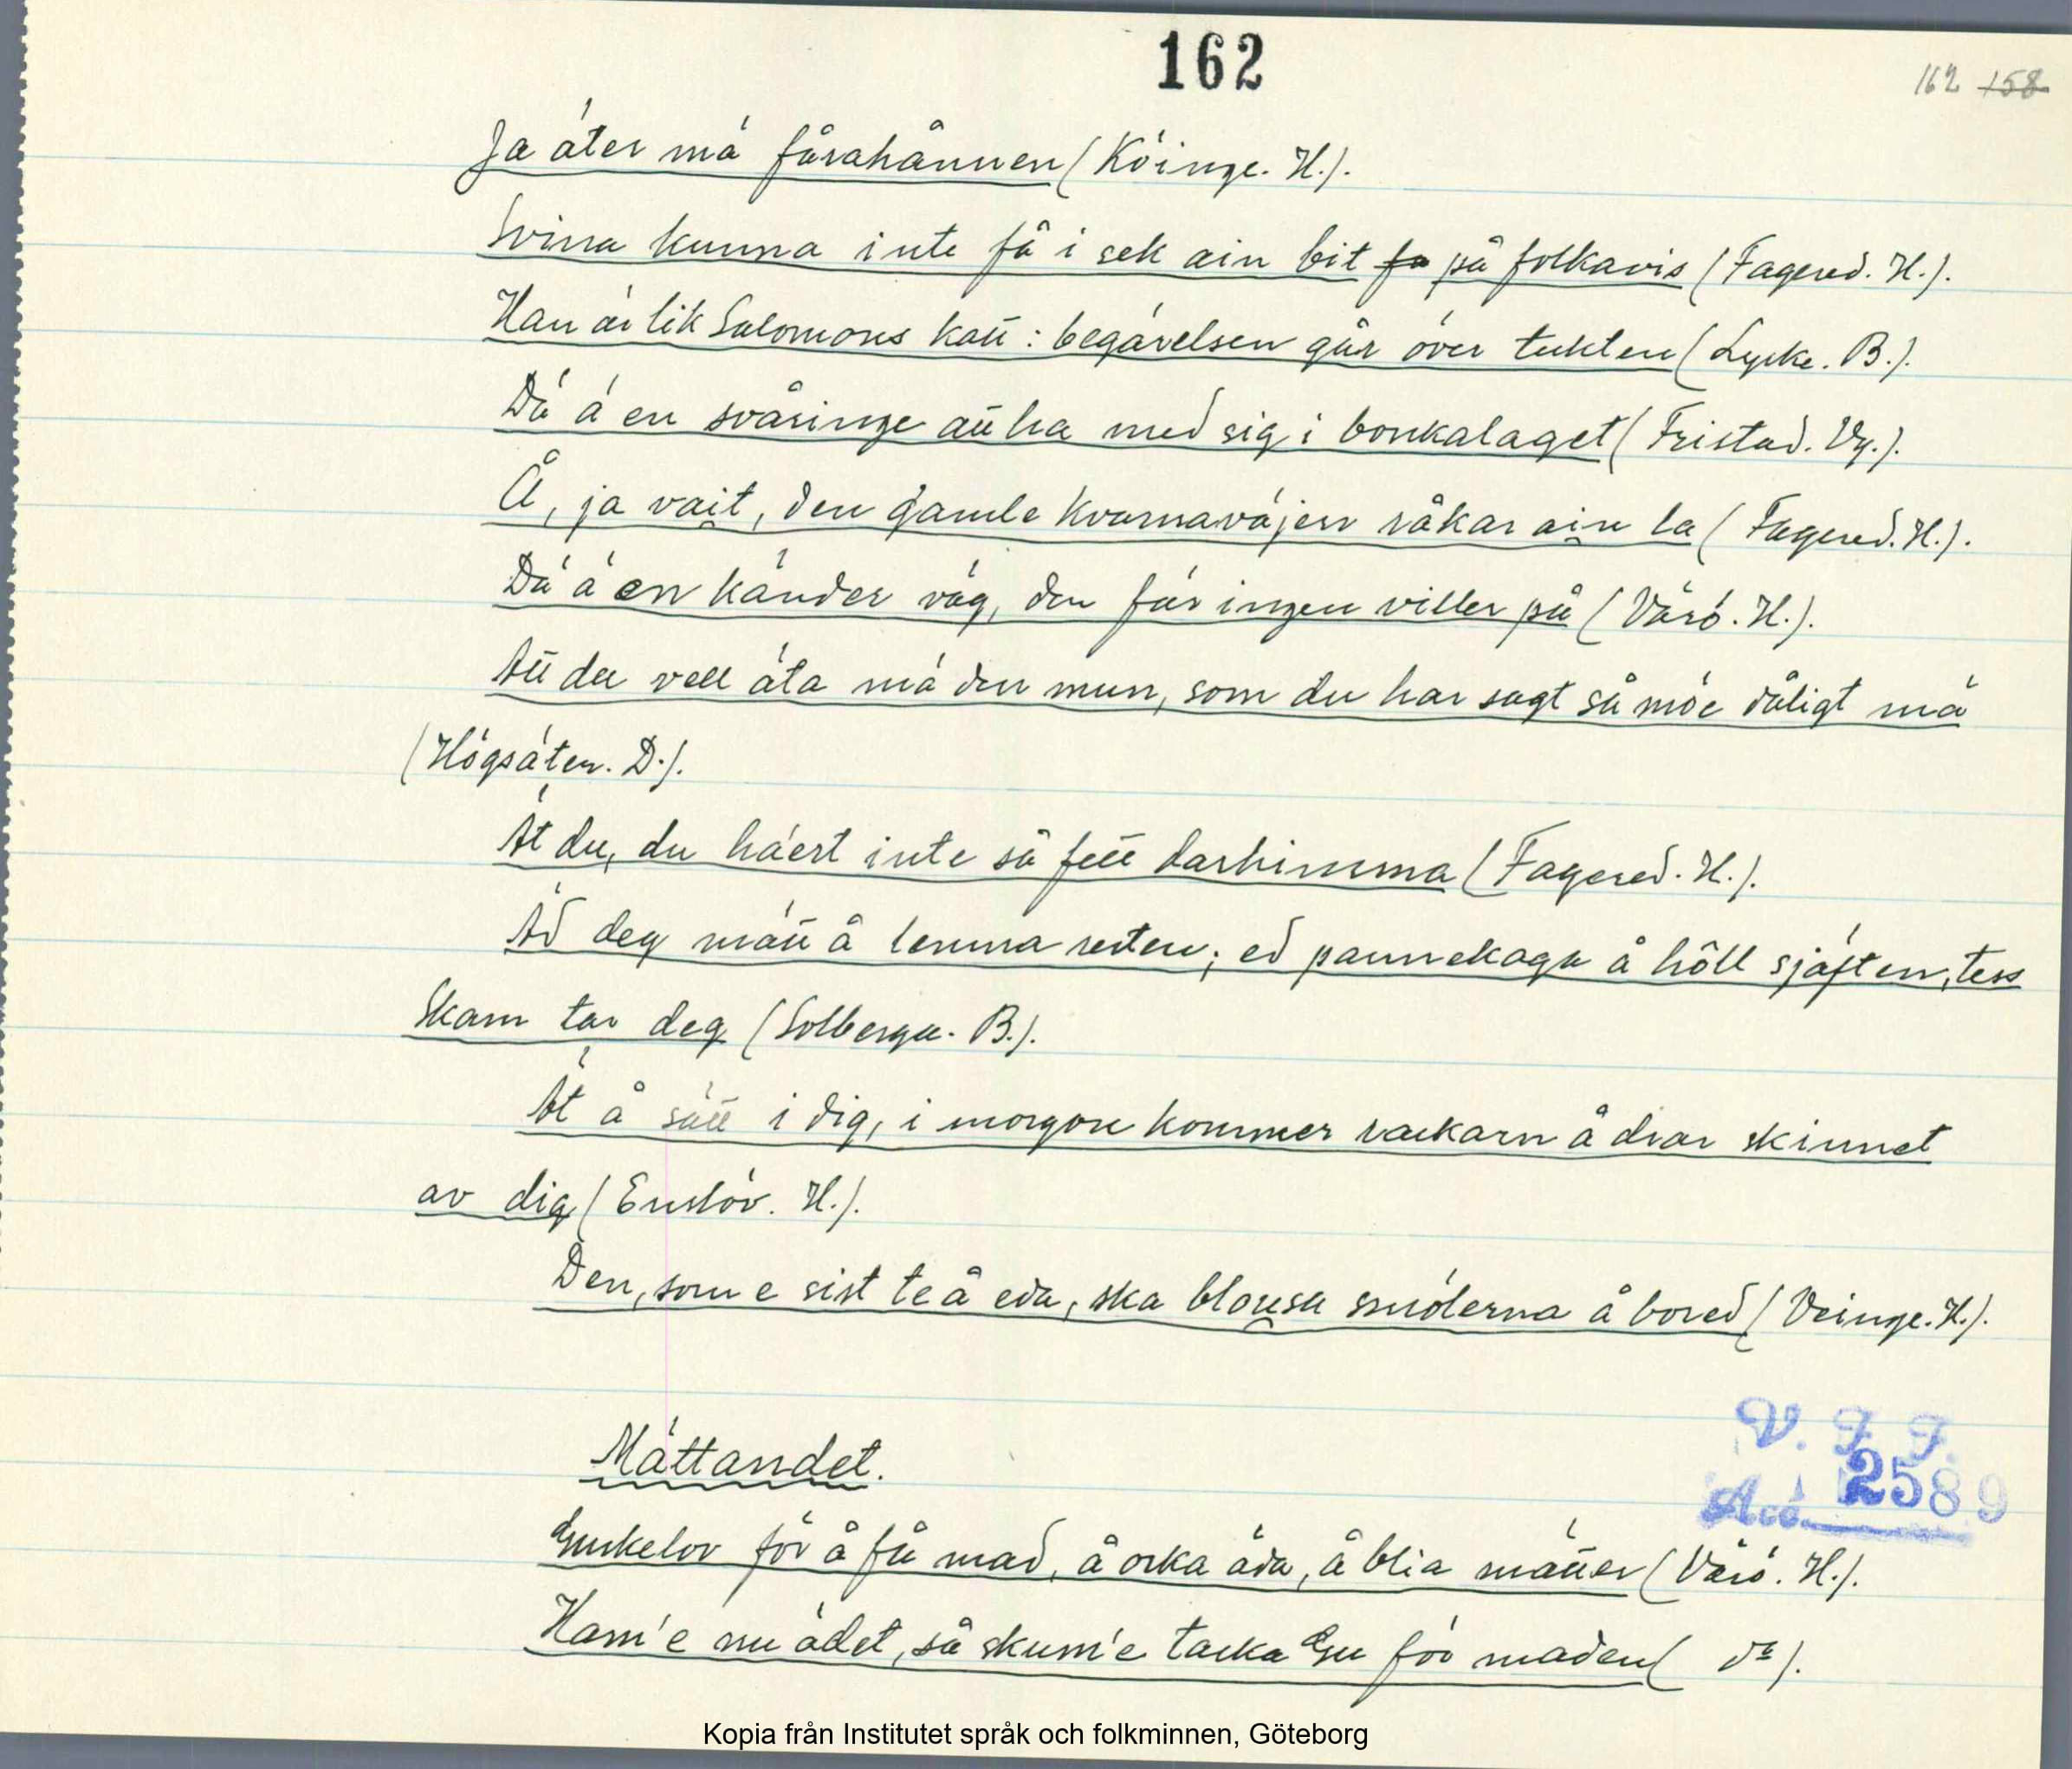 162
162 158
Ja äter mä fårahånnen (Köinge. H.).
Svina kunna inte få i sek ain bit fo på folkavis (Fagered. H.).
Han är lik Salomons katt: begärelsen går över tukten (Lycke. B.).
Dä ä en svåringe att ha med sig i bonkalaget (Fristad. Vg.).
Å, ja vait, den gamle kvarnaväjen råkar ain la (Fagered. H.).
Dä ä en känder väg, den får ingen viller på (Värö. H.).
Att du vell äta mä den mun, som du har sagt så möe dåligt mä
(Högsäter. D.).
Ät du, du häert inte så fett darhimma (Fagered. H.).
Äd deg mätt å lemna resten; ed pannekaga å höll sjäften, tess
Skam tar deg (Solberga. B.).
Ät å sätt i dig, i morgon kommer rackarn å drar skinnet
av dig (Enslöv. H.).
Den, som e sist te å eda, ska blousa smölerna å bored (Veinge. H.).
Mättandet.
V. F. F.
Acc. 2589
Guskelov för å få mad, å orka äda, å blia mätter (Värö. H.).
Ham'e nu ädet, så skum'e tacka Gu för maden ( do ).
Kopia från Institutet språk och folkminnen, Göteborg